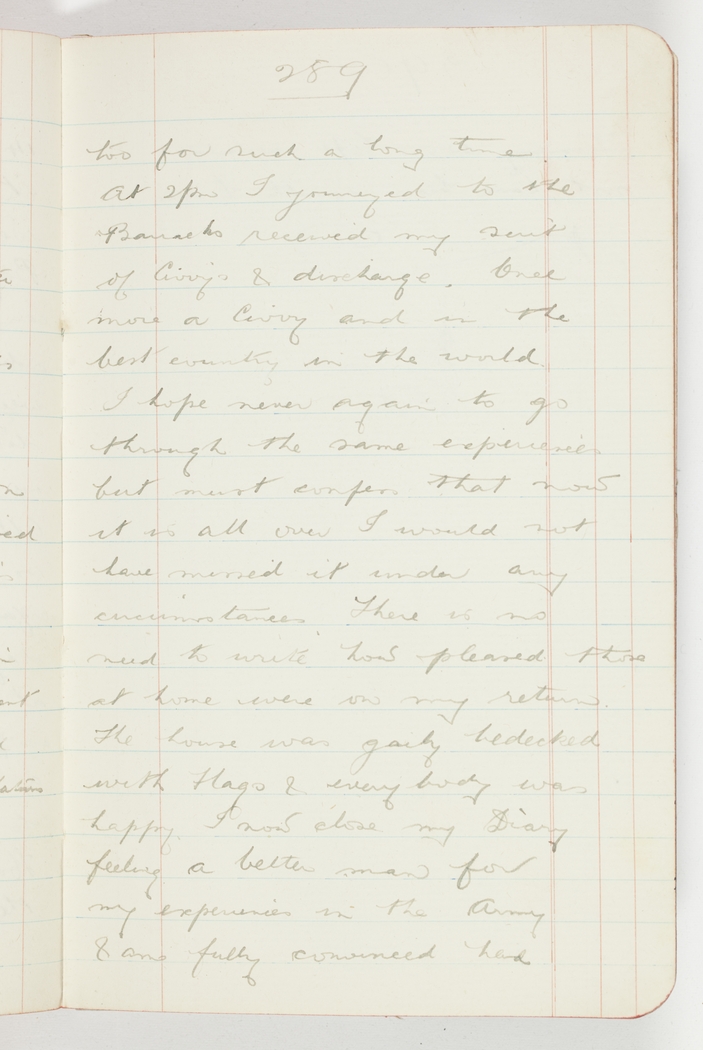 289
too for such a long time
At 2pm I journeyed to the
Barracks received my suit
of Civvys & discharge. Once
more a Civvy and in the
best country in the world.
I hope never again to go
through the same experiences
but must confess that now
it is all over I would not
have missed it under any
circumstances. There is no
need to write how pleased those
at home were on my return.
The house was gaily bedecked
with flags & everybody was
happy. I now close my Diary
feeling a better man for
my experiences in the Army
& am fully convinced had